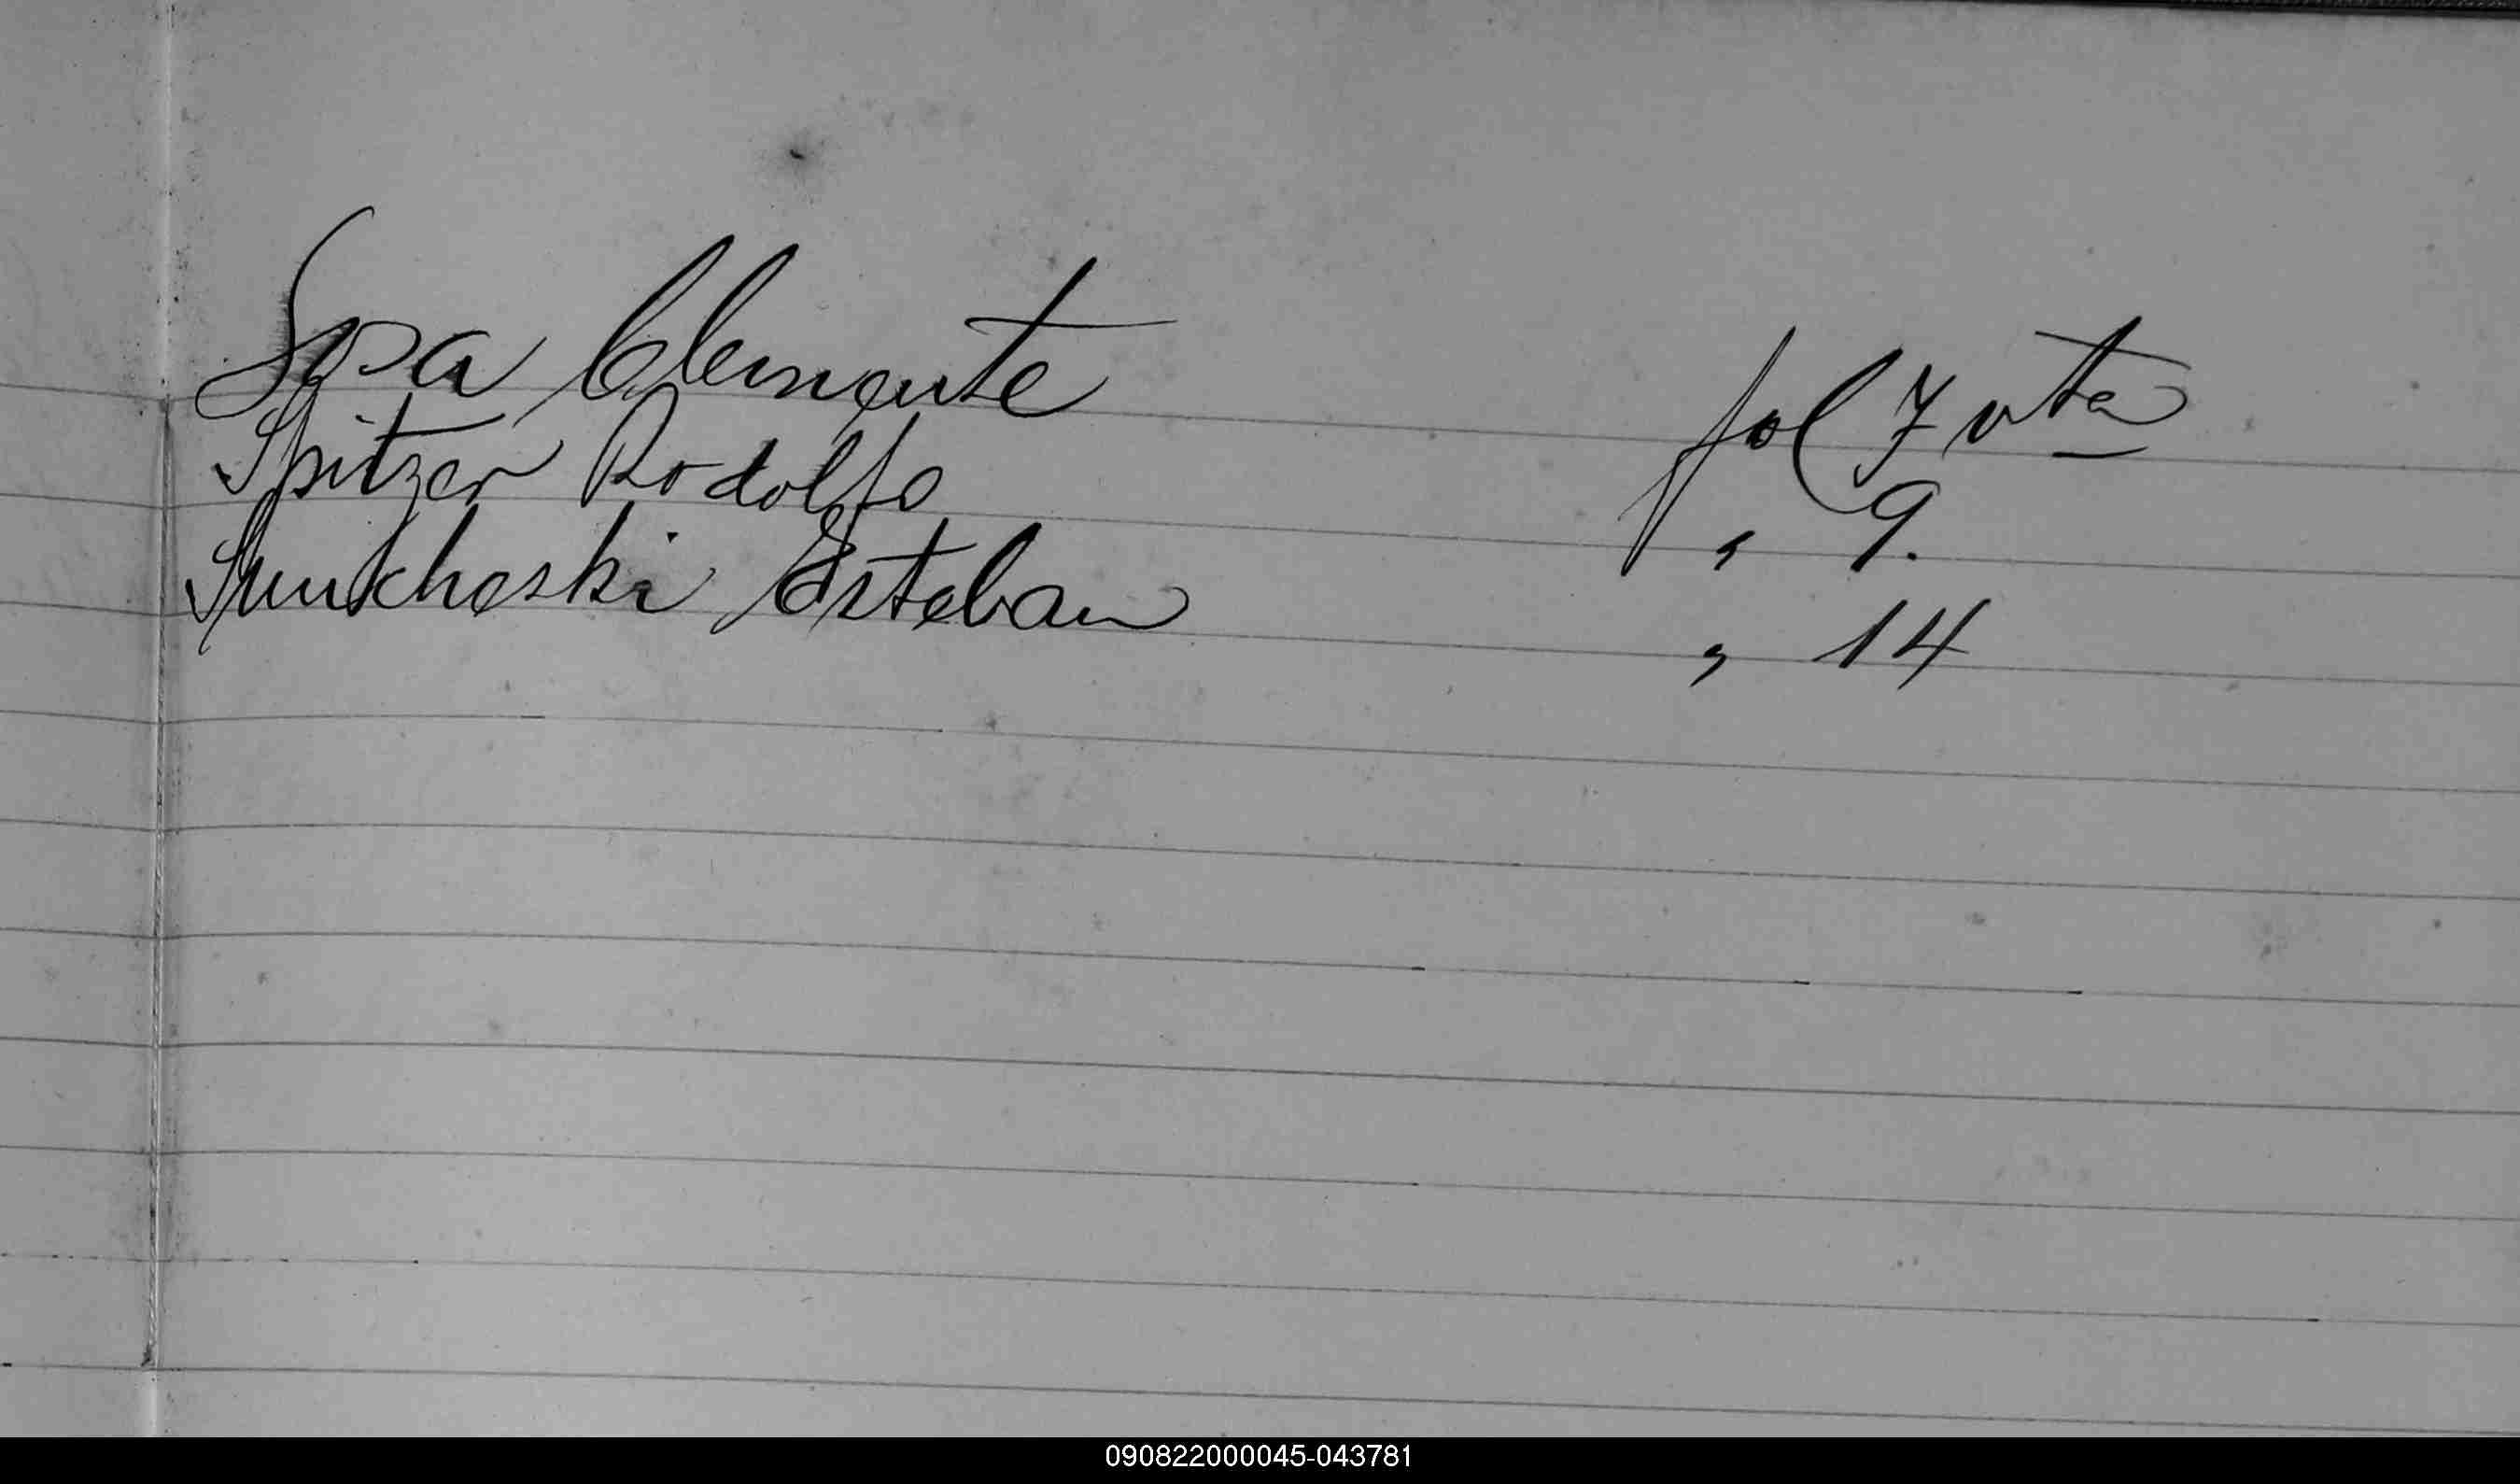 Spa Clemente fol 7 vta
Spitzer Rodolfo " 9.
Esteban " 14
090822000045-043781